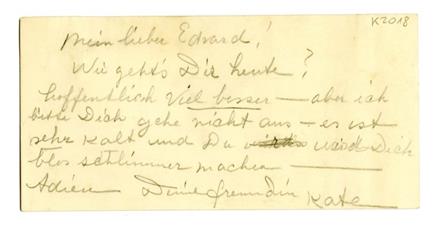 K2018
Mein lieber Edvard!
Wie geht's Dir heute?
hoffentlich viel besser — aber ich
bitte Dich gehe nicht aus — es ist
sehr Kalt und Du wird Dich
blos schlimmer machen —
Adieu Deine freundin Kate